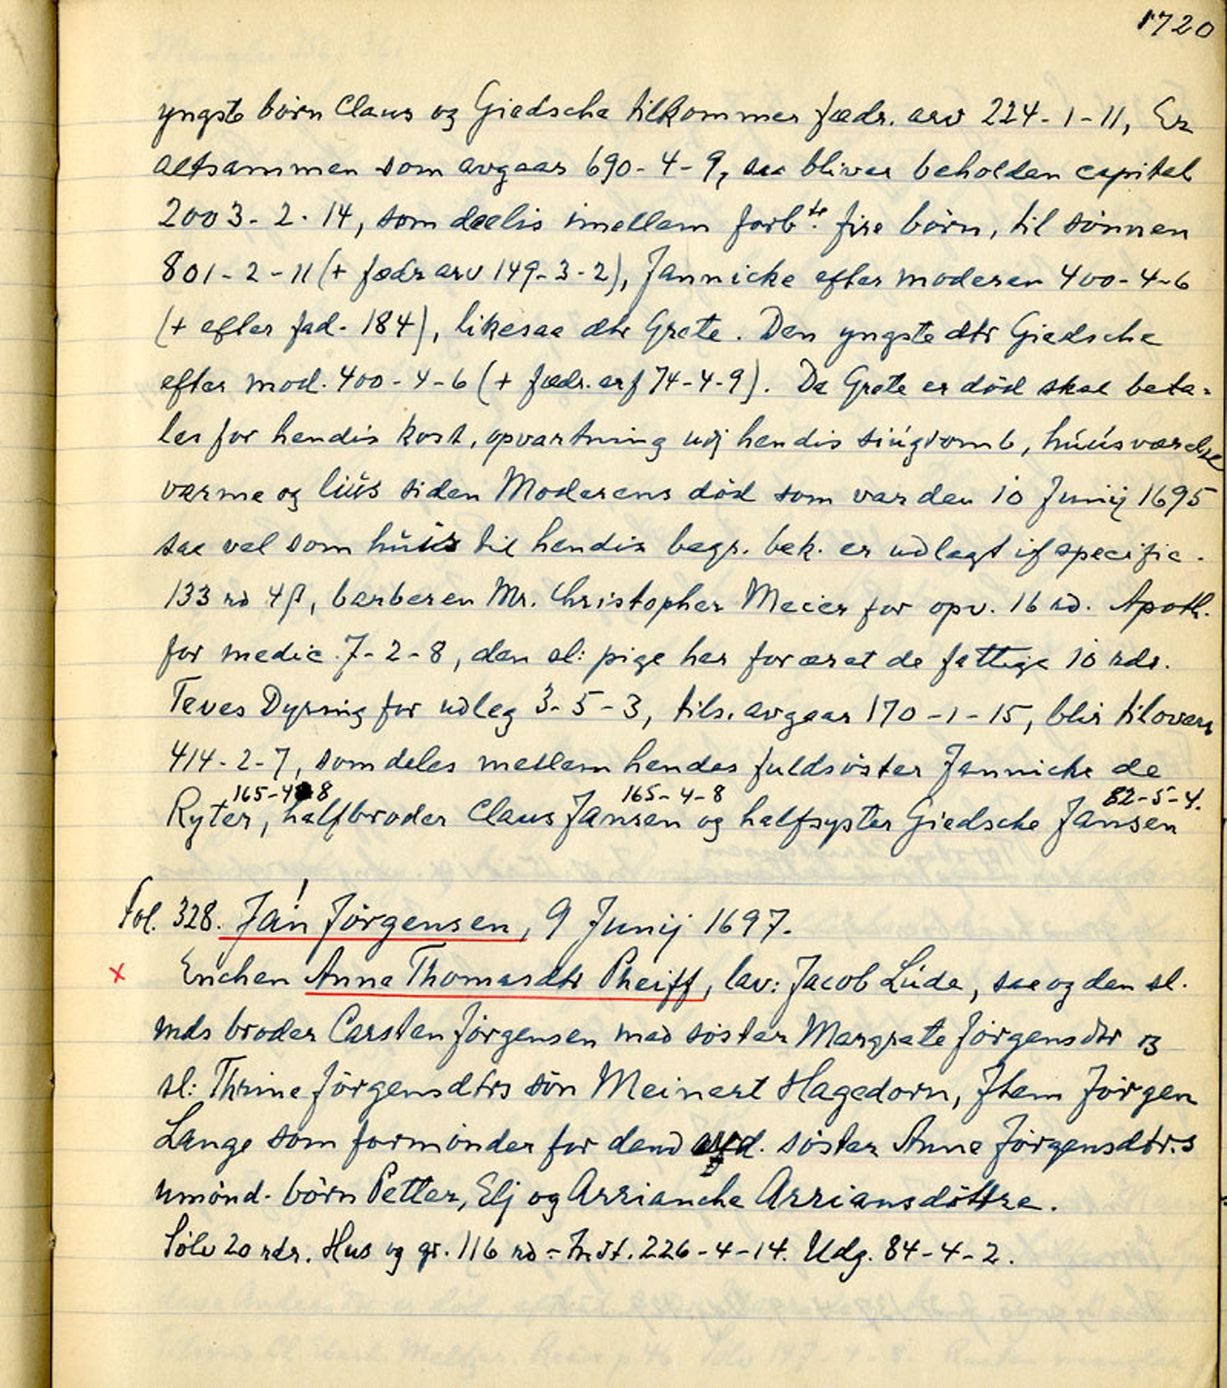 1720
yngste børn Claus og Giedsche tilkommer fædr. arv 224-1-11, Er
altsammen som avgaar 690-4-9, saa bliver beholden capital
2003-2-14, som deelis imellem forb.te fire børn, til sönnen
801-2-11 (+ fædr arv 149-3-2), Jannicke efter moderen 400-4-6
(+ efter fad. 184), likesaa dtr Grete. Den yngste dtr Giedsche
efter mod. 400-4-6 (+ fædr. arf 74-4-9). Da Grete er död skal beta-
les for hendis kost, opvartning udj hendis siúgdomb, húúsværelse
varme og liús siden Moderens död som var den 10 Junij 1695
saa vel som húús til hendis begr. bek. er udlagt if specific.
133 rd 4β, barberen Mr. Christopher Meier for opv. 16 rd. Apoth.
for medic. 7-2-8, den sl: pige har foræret de fattige 10 rdr.
Teves Dyring for udleg 3-5-3, tils. avgaar 170-1-15, blir tilovers
414-2-7, som deles mellem hendes fuldsöster Jannicke de
165-4-8 165-4-8 82-5-4.
Ryter, halfbroder Claus Jansen og halfsyster Giedsche Jansen
Fol. 328. Jan! Jörgensen, 9 Junij 1697.
x Enchen Anna Thomasdtr Pheiff, lav: Jacob Lúda, saa og den sl.
mds broder Carsten Jörgensen med söster Margrete Jörgensdtr og
sl: Thrine Jörgensdtrs sön Meinert Hagedorn, Item Jörgen
Lange som formönder for dend söster Anne Jörgensdtr.s
umönd. börn Petter, Elj og Arrianche Arriansdöttre.
Sölv 20 rdr. Hus og gr. 116 rd = 226-4-14. Udg. 84-4-2.